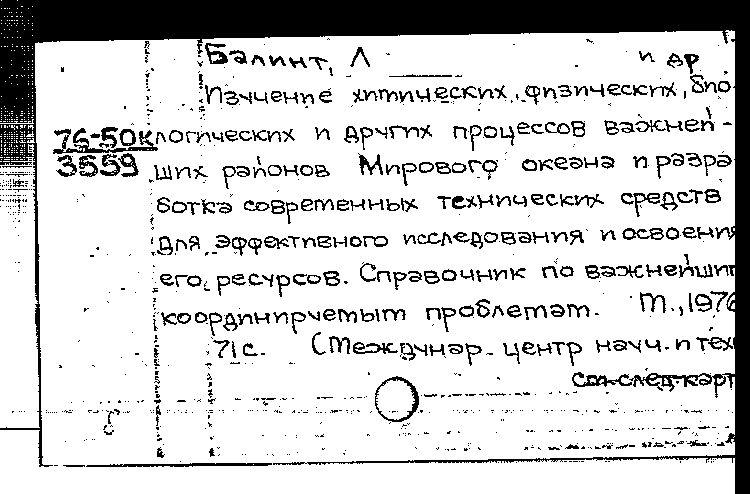 Балинт, Л и др
Изучение химических, физических, био-
76-50К логических и других процессов важней-
3559 ших районов Мирового океана и разра
ботка современных технических средств
для эффективного исследования и освоения
его ресурсов. Справочник по важнейшим
координируемым проблемам. М., 1976
71 с. (Междунар. центр науч. и тех
см. след. карт